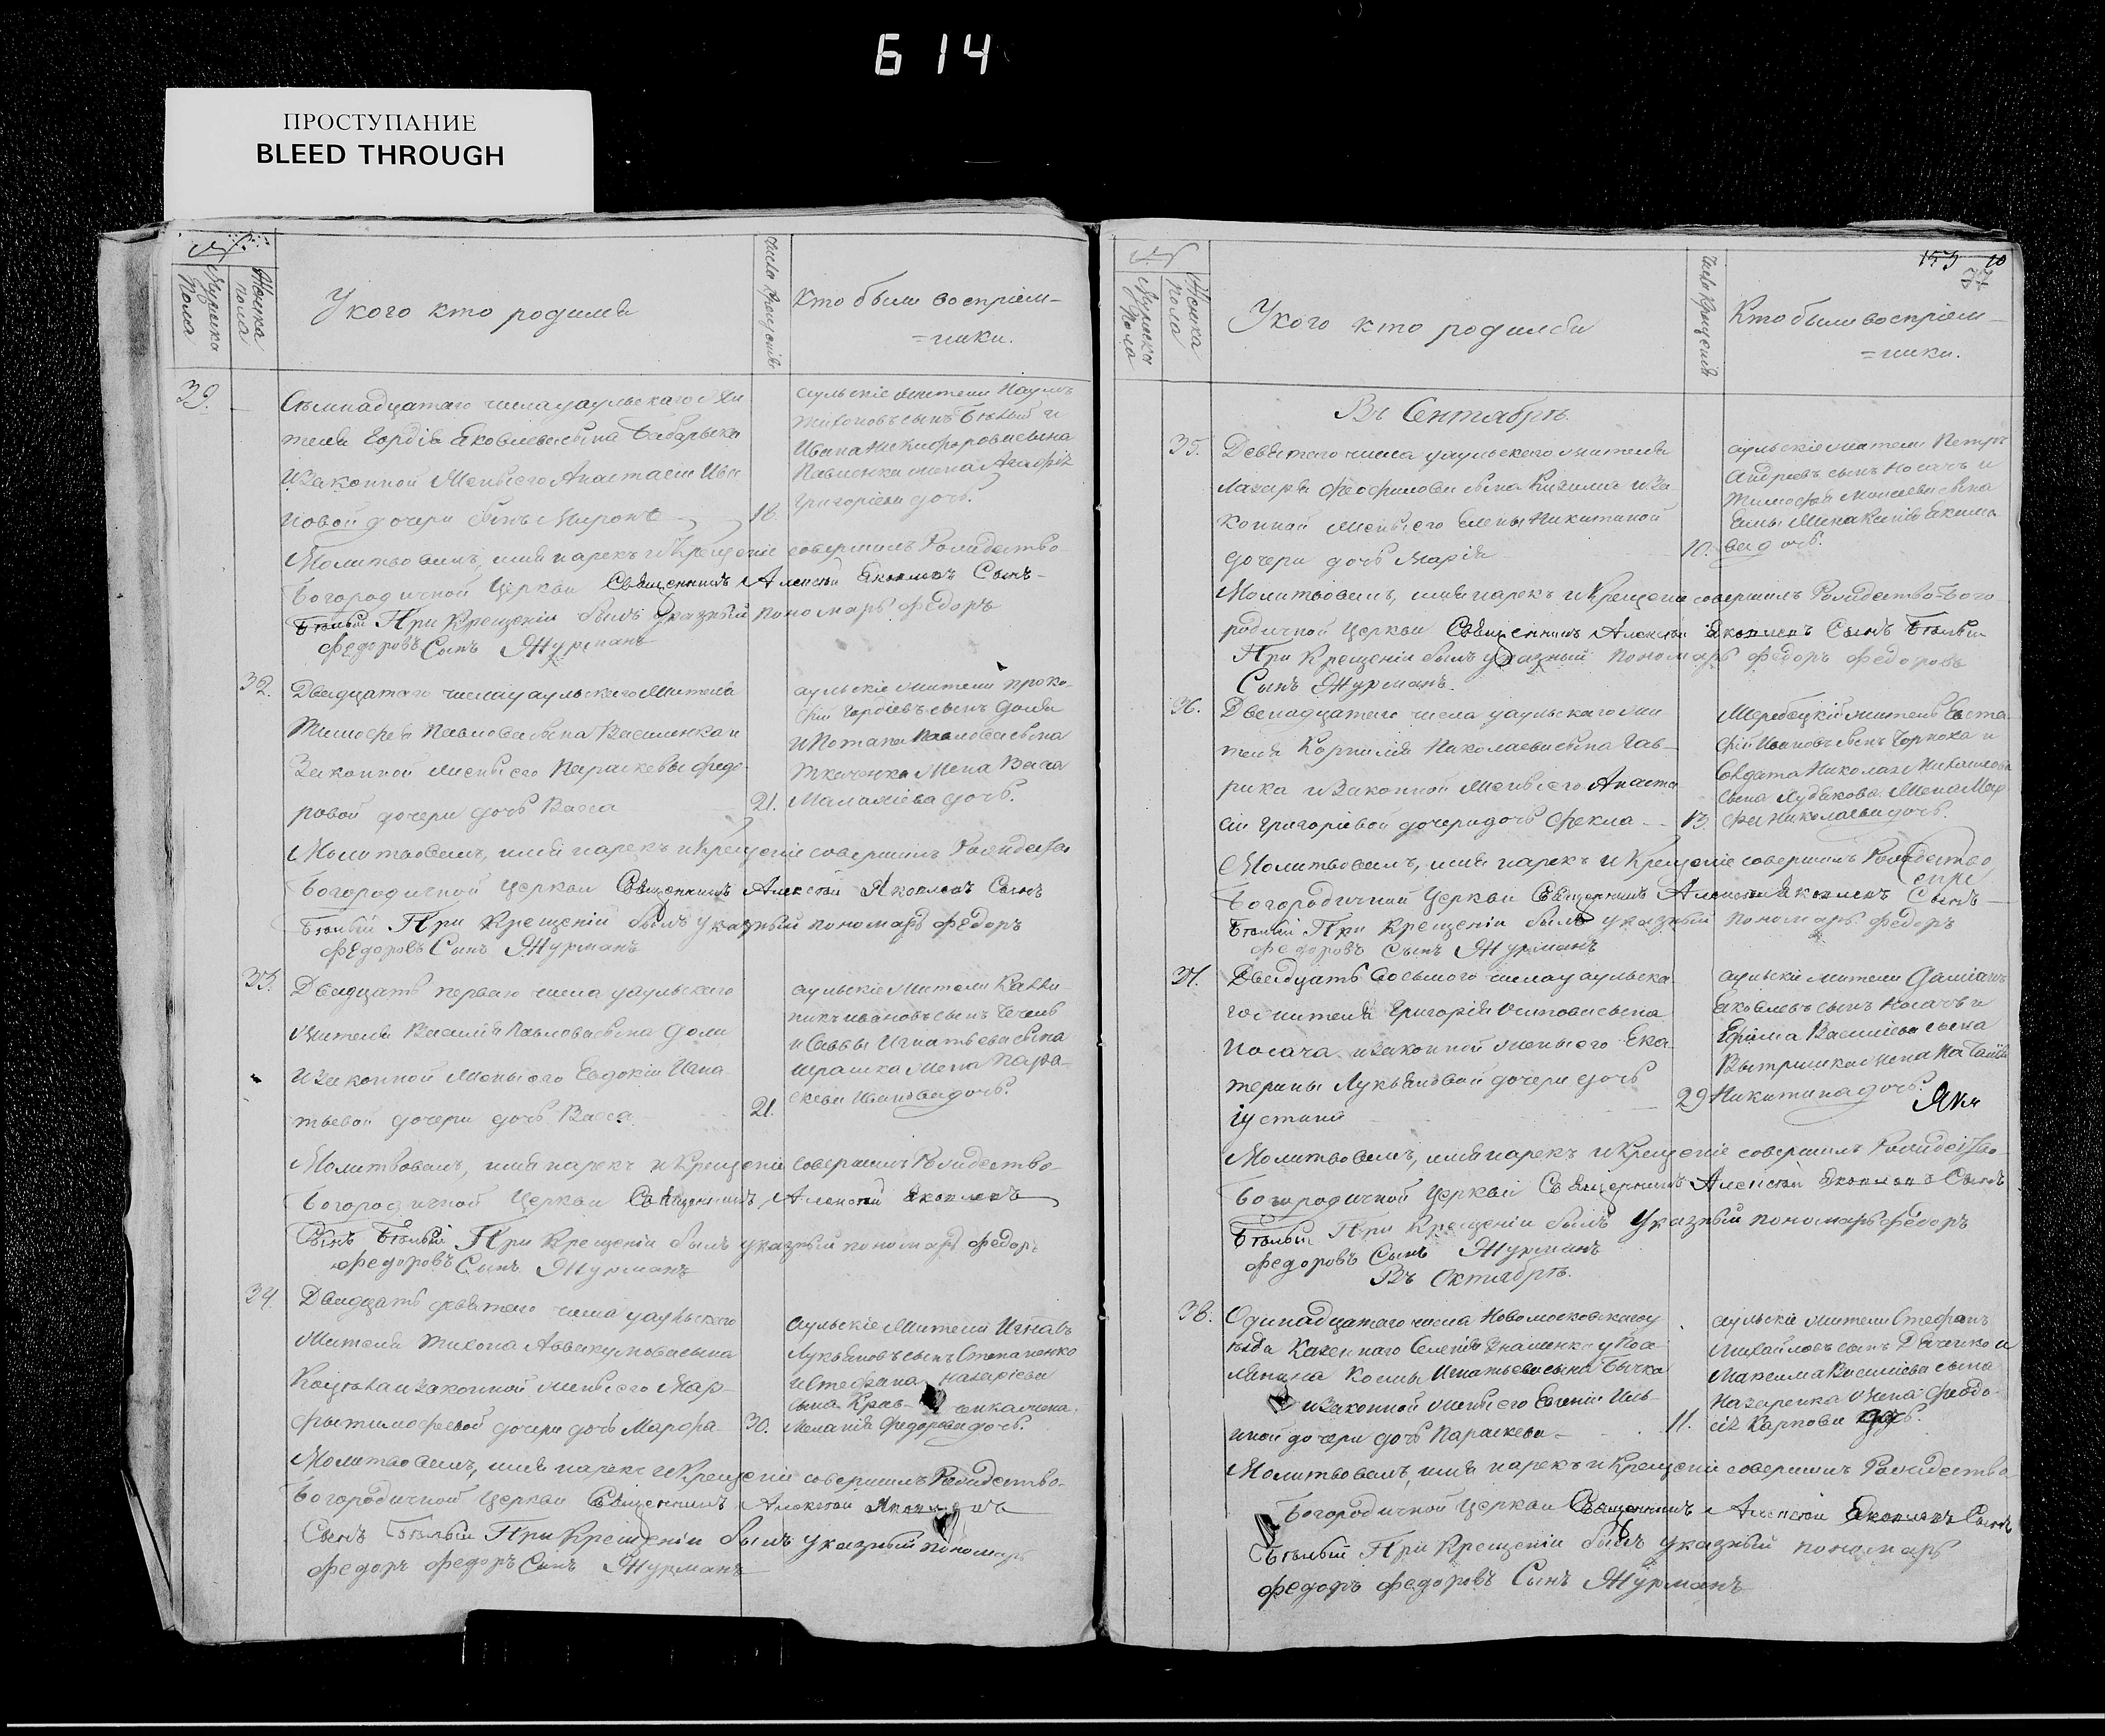 614
ПРОСТУПАНИЕ
BLEED THROUGH
№
Мужска пола
Женска пола
У кого кто родился
Число крещенія
Кто были воспріем-
=ники.
39.
Семнадцатаго числа уаульскаго жи
теля Гордія Яковлева сына Бабарыка
и законной жены его Анастасіи Ива
новой дочери сынъ Миронъ
18.
аульскіе жители Наумъ
Тихоновъ сынъ Белый и
Ивана Никифорова сына
Павленка жена Агафія
Григоріева дочь.
Молитвовалъ, имя нарекъ и Крещеніе совершилъ Рождество
Богородичной Церкви Священникъ Алексѣй Яковлевъ Сынъ
Бѣлый При Крещеніи былъ указный пономарь Федоръ
Федоровъ Сынъ Журманъ
32.
Двадцатаго числа уаульскаго жителя
Тимофея Павлова сына Василенка и
Законной жены его Параскевы Федо
ровой дочери дочь Васса
21.
аульскіе жители Проко
фій Гордіевъ сынъ Доля
и Потапа Павлова сына
Ткаченка жена Васса
Маламіева дочь.
Молитвовалъ, имя нарекъ и Крещеніе совершилъ Рождество
Богородичной Церкви Священникъ Алексѣй Яковлевъ Сынъ
Бѣлый При Крещеніи былъ указный пономарь Федоръ
Федоровъ Сынъ Журманъ
33.
Двадцать перваго числа уаульскаго
жителя Василія Павлова сына Доли
и Законной жены его Евдокіи Игна
тьевой дочери дочь Васса
21.
аульскіе жители Калли
никъ Ивановъ сынъ Чечель
и Саввы Игнатьева сына
жена Пара-
скева Иванова дочь.
Молитвовалъ, имя нарекъ и Крещеніе совершилъ Рождество-
Богородичной Церкви Священникъ Алексѣй Яковлевъ
Сынъ Бѣлый При Крещеніи былъ указный пономарь Федоръ
Федоровъ Сынъ Журманъ
34.
Двадцать девятаго числа уаульскаго
жителя Тихона Аввакумова сына
и законной жены его Мар-
фы Тимофеевой дочери дочь Марфа
30.
аульскіе жители Игнатъ
Лукьяновъ сынъ Степаненко
и Стефана Назаріева
сына жена
Меланія Федорова дочь.
Молитвовалъ, имя нарекъ и Крещеніе совершилъ Рождество-
Богородичной Церкви Священникъ Алексѣй Яковлевъ
Сынъ Бѣлый При Крещеніи былъ указный пономарь
Федоръ Федоръ Сынъ Журманъ
153
10
77
№
Мужска пола
Женска пола
У кого кто родился
Число Крещенія
Кто были воспріем-
=ники.
Въ Сентябрѣ.
35.
Девятаго числа уаульскаго жителя
Лазаря Феофилова сына Кизима и за-
конной жены его Елены Никитиной
дочери дочь Марія
10.
аульскіе жители Петръ
Андреевъ сынъ Носачъ и
Тимофея Моисеева сына
жена Ксенія Якимо
ва дочь.
Молитвовалъ, имя нарекъ и Крещеніе совершилъ Рождество-Бого
родичной Церкви Священникъ Алексѣй Яковлевъ Сынъ Бѣлый
При Крещеніи былъ указный пономарь Федоръ Федоровъ
Сынъ Журманъ.
36.
Двенадцатаго числа уаульскаго жи
теля Корнилія Николаева сына Гав-
рика и Законной жены его Анаста
сіи Григоріевой дочери дочь Фекла
13.
житель Евста-
фій Ивановъ сынъ и
Солдата Николая Михайлова
сына жена Мар
фа Николаева дочь.
Молитвовалъ, имя нарекъ и Крещеніе совершилъ Рождество
Богородичной Церкви Священникъ Алексѣй Яковлевъ Сынъ
Бѣлый При Крещеніи былъ указный пономарь Федоръ
Федоровъ Сынъ Журманъ
37.
Двадцать восьмого числа уаульска
го жителя Григорія Осипова сына
Носача и Законной жены его Ека-
терины Лукьяновой дочери дочь
Іустина
29
аульскіе жители Даміанъ
Яковлевъ сынъ Носачъ и
Ефима Василіева сына
жена Наталія
Никитина дочь.
Молитвовалъ, имя нарекъ и Крещеніе совершилъ Рождество-
Богородичной Церкви Священникъ Алексѣй Яковлевъ Сынъ
Бѣлый При Крещеніи былъ указный пономарь Федоръ
Федоровъ Сынъ Журманъ
Въ Октябрѣ.
38.
Одинадцатаго числа Новомосковскаго у
езда Казеннаго Селенія Знаменки у Посе
лянина Космы Игнатьева сына Бычка
и Законной жены его Евгеніи Иль-
иной дочери дочь Параскева
11.
аульскіе жители Стефанъ
Михайловъ сынъ Дяченко и
Максима Василіева сына
Назаренка жена Феодо-
сія Карпова дочь.
Молитвовалъ, имя нарекъ и Крещеніе совершилъ Рождество
Богородичной Церкви Священникъ Алексѣй Яковлевъ Сынъ
Бѣлый При Крещеніи былъ указный пономарь
Федоръ Федоровъ Сынъ Журманъ